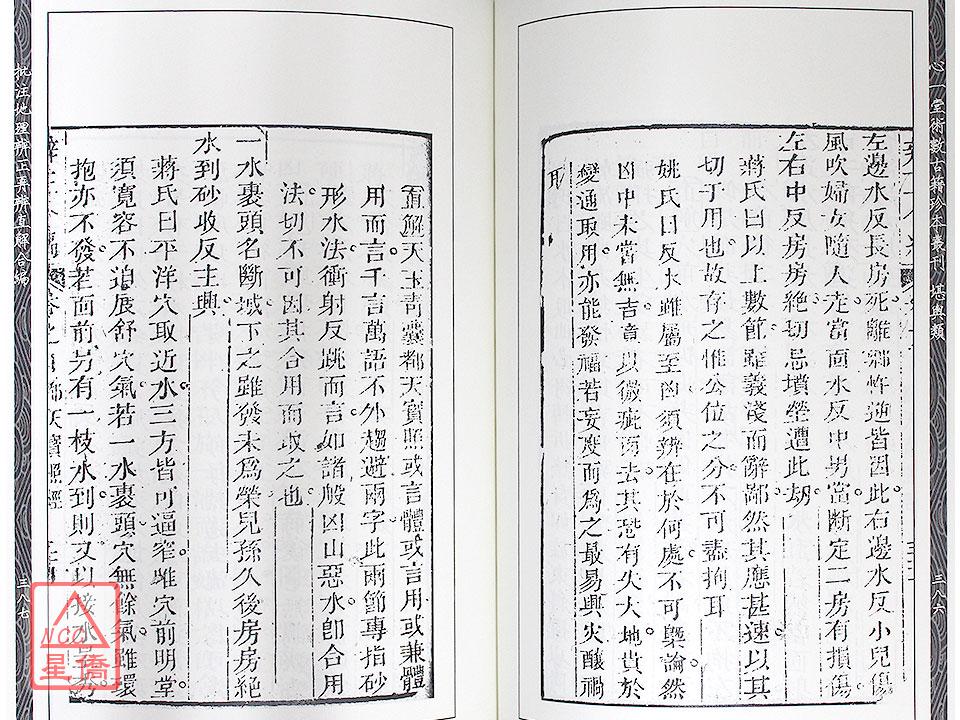 心一堂術數古籍珍本叢刊　堪輿類
三八六
左邊水反長房死離鄉忤逆皆因此右邊水反小兒傷
風吹婦女隨人走當面水反中男當斷定二房有損傷
左右中反房房絕切忌墳塋遭此刼
蔣氏曰以上數節雖義淺而辭鄙然其應甚速以其
切于用也故存之惟公位之分不可盡拘耳
姚氏曰反水雖屬至凶須辨在於何處不可槩論然
凶中未嘗無吉竟以微疵而去其恐有失大地貴於
變通取用亦能發福若妄度而為之最易興災釀禍
直解天玉青囊都天寶照或言體或言用或兼體
用而言千言萬語不外趨避兩字此兩節專指砂
形水法衝射反跳而言如諸般凶山惡水即合用
法切不可因其合用而收之也
一水裹頭名斷城下之雖發未為榮兒孫久後房房絕
水到砂收反主興
蔣氏曰平洋穴取近水三方皆可逼窄雖穴前明堂
須寬容不迫展舒穴氣若一水裹頭穴無餘氣雖環
抱亦不發若面前另有一枝水到則又以接水
批注地理辨正再辨直解合編
三八七
NCC
星僑